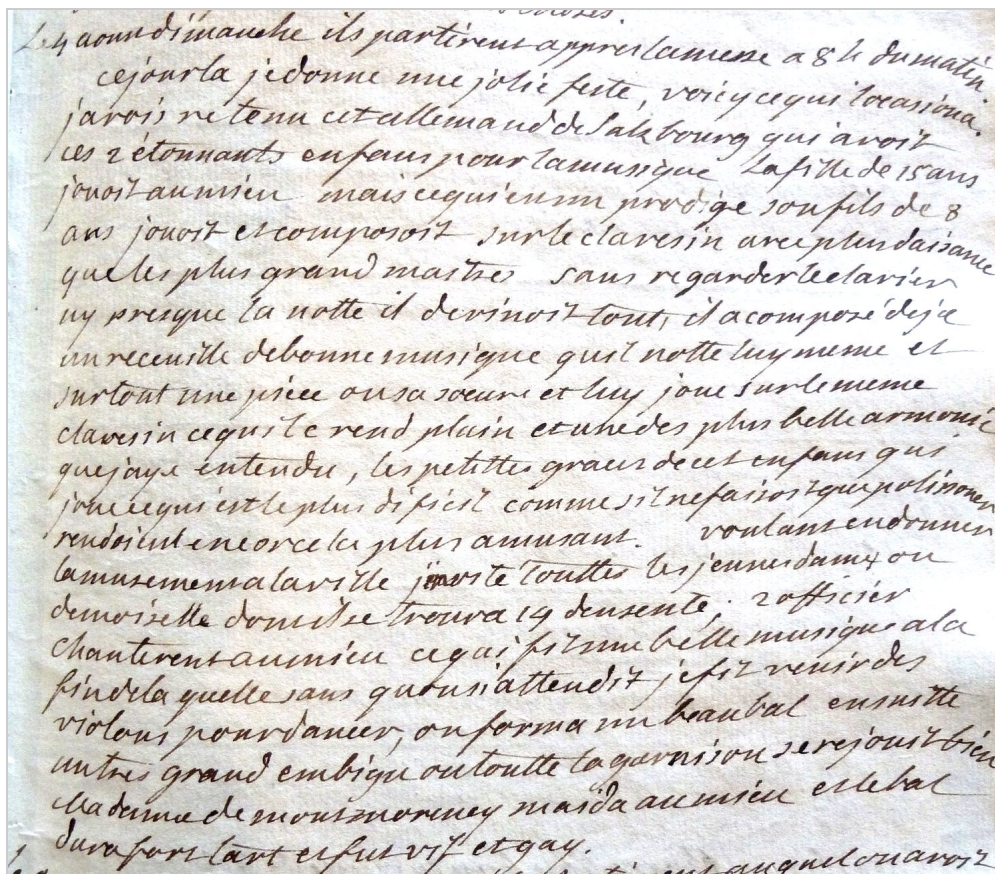 Le 4 aoust dimanche ils partirent appres lamesse a 8 h du matin.
cejourla jedonne une jolie feste, voicy cequi locasiona.
javois retenu cet allemand de Salzbourg qui avoit
ces 2 étonnants enfans pour lamusique La fille de 15 ans
jouoit aumieu mais cequi en un prodige son fils de 8
ans jouoit et composoit sur le clavesin avec plus daisance
que les plus grand maitres sans regarder le clavier
ny presque la notte il devinoit tout, il a composé déja
un receuille de bonne musique quil notte luy meme et
surtout une piece ou sa soeure et luy joue sur le meme
clavesin cequi le rend plain et une des plus belle armonie
que jaye entendu, les petittes graces decet enfans qui
joue cequi est le plus dificil comme sil nefaisoit que polissoner
rendoient encore cela plus amusant. voulant en donner
lamusement a la ville jinvite touttes les jeunes dames ou
demoiselle dont il se trouva 14 densente, 2 officier
chanterent aumieu cequi fit une belle musique ala
fin de la quelle sans quonsi attendit je fit venir des
violons pour dancer, on forma un beau bal ensuitte
un tres grand embigu ou toutte la garnison se rejouit bien
Madame de montmorency maida aumieu et le bal
dura fort tart et fut vif et gay.
auquel on avoit